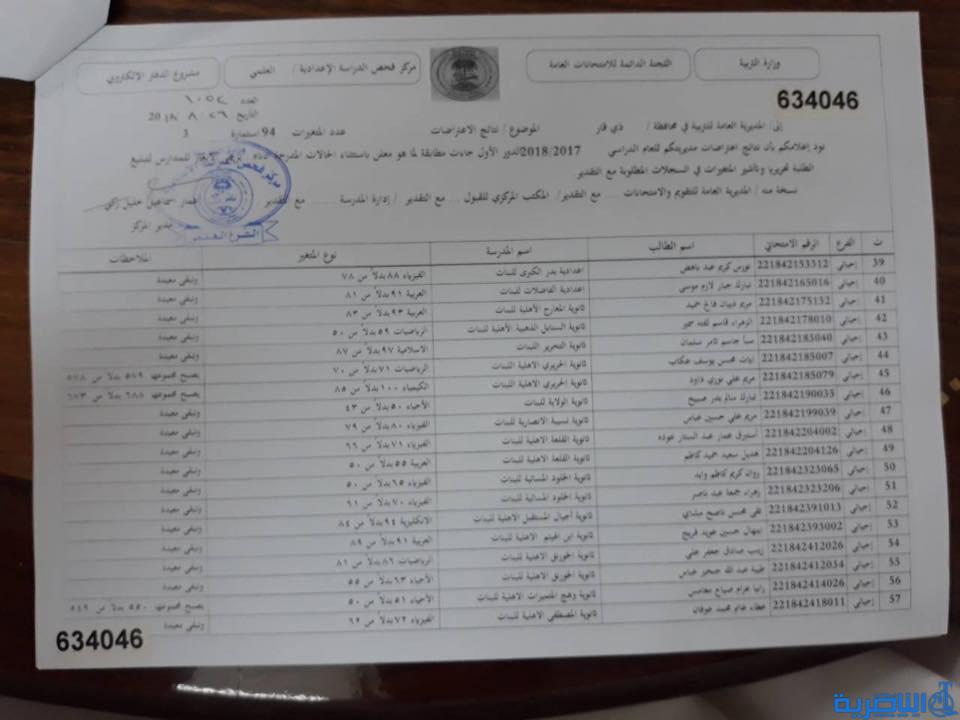 وزارة التربية
اللجنة الدائمة للامتحانات العامة
مركز فحص الدراسة الإعدادية / العلمي
مشروع الدفتر الالكتروني
634046
العدد ٦٠٥٢
التاريخ ٢٦ / ٨ / 2018
إلى/ المديرية العامة للتربية في محافظة / ذي قار
الموضوع / نتائج الاعتراضات
عدد المتغيرات 94 استمارة 3
نود إعلامكم بأن نتائج اعتراضات مديريتكم للعام الدراسي 2018/2017 الدور الأول جاءت مطابقة لما هو معلن باستثناء الحالات المدرجة للمدارس لتبليغ
الطلبة تحريريا وتأشير المتغيرات في السجلات المطلوبة مع التقدير
نسخة منه / المديرية العامة للتقويم والامتحانات ..... مع التقدير/ المكتب المركزي للقبول .... مع التقدير / إدارة المدرسة ..... مع التقدير
عمار سماعيل خليل زكي
مدير المركز
ت الفرع الرقم الامتحاني اسم الطالب اسم المدرسة نوع المتغير الملاحظات
39 إحيائي 221842153312 نورس كريم عبد ناهض اعدادية بدر الكبرى للبنات الفيزياء ٨٨ بدلاً من ٧٨ وتبقى معيدة
40 إحيائي 221842165016 تبارك جبار لازم موسى إعدادية الفاضلات للبنات العربية ٩١ بدلاً من ٨١ وتبقى معيدة
41 إحيائي 221842175152 مريم ذيبان فالح حميد ثانوية المعارج الأهلية للبنات العربية ٩٣ بدلاً من ٨٣ وتبقى معيدة
42 إحيائي 221842178010 الزهراء قاسم لفته ثانوية السنابل الذهبية الأهلية للبنات الرياضيات ٥٩ بدلاً من ٥٠ وتبقى معيدة
43 إحيائي 221842183040 صبا جاسم ثامر سلمان ثانوية التحرير للبنات الاسلامية ٩٧ بدلاً من ٨٧ وتبقى معيدة
44 إحيائي 221842185007 ايات محسن يوسف عكاب ثانوية الحريري الاهلية للبنات الرياضيات ٧١ بدلاً من ٧٠ يصبح مجموعها ٥٧٩ بدلاً من ٥٧٨
45 إحيائي 221842185079 مريم علي نوري داود ثانوية الحريري الاهلية للبنات الكيمياء ١٠٠ بدلاً من ٨٥ يصبح مجموعها ٦٨٨ بدلاً من ٦٧٣
46 إحيائي 221842190035 تبارك سالم بدر صبيح ثانوية الولاية للبنات الأحياء ٥٠ بدلاً من ٤٣ وتبقى معيدة
47 إحيائي 221842199039 مريم علي حسين عباس ثانوية نسيبة الانصارية للبنات الفيزياء ٨٠ بدلاً من ٧٩ وتبقى معيدة
48 إحيائي 221842204002 أستبرق عمار عبد الستار عوده ثانوية القلعة الاهلية للبنات الفيزياء ٧١ بدلاً من ٦٦ وتبقى معيدة
49 إحيائي 221842204126 هديل سعيد حميد كاظم ثانوية القلعة الاهلية للبنات العربية ٥٥ بدلاً من ٥٠ وتبقى معيدة
50 إحيائي 221842323065 روان كريم كاظم وايد ثانوية الخلود المسائية للبنات الفيزياء ٦٥ بدلاً من ٥٠ وتبقى معيدة
51 إحيائي 221842323206 زهراء جمعة عبد ناصر ثانوية الخلود المسائية للبنات الفيزياء ٧٠ بدلاً من ٦١ وتبقى معيدة
52 إحيائي 221842391013 تقى محسن ناصح ثانوية أجيال المستقبل الاهلية للبنات الانكليزية ٩٤ بدلاً من ٨٤ وتبقى معيدة
53 إحيائي 221842393002 ابتهال حسين عويد فريح ثانوية ابن الهيثم الاهلية للبنات العربية ٩١ بدلاً من ٨٩ وتبقى معيدة
54 إحيائي 221842412026 زينب صادق جعفر علي ثانوية الخورنق الاهلية للبنات الرياضيات ٨٦ بدلاً من ٨١ وتبقى معيدة
55 إحيائي 221842412034 طيبة عبد الله عباس ثانوية الخورنق الاهلية للبنات الأحياء ٦٣ بدلاً من ٥٥ وتبقى معيدة
56 إحيائي 221842414026 رانيا عزام صباح مغامس ثانوية وهج المتميزات الاهلية للبنات الأحياء ٥١ بدلاً من ٥٠ يصبح مجموعها ٥٥٠ بدلاً من ٥٤٩
57 إحيائي 221842418011 عطاء محمد عوفان ثانوية المصطفى الاهلية للبنات الفيزياء ٧٢ بدلاً من ٦٢ وتبقى معيدة
634046
الناصرية